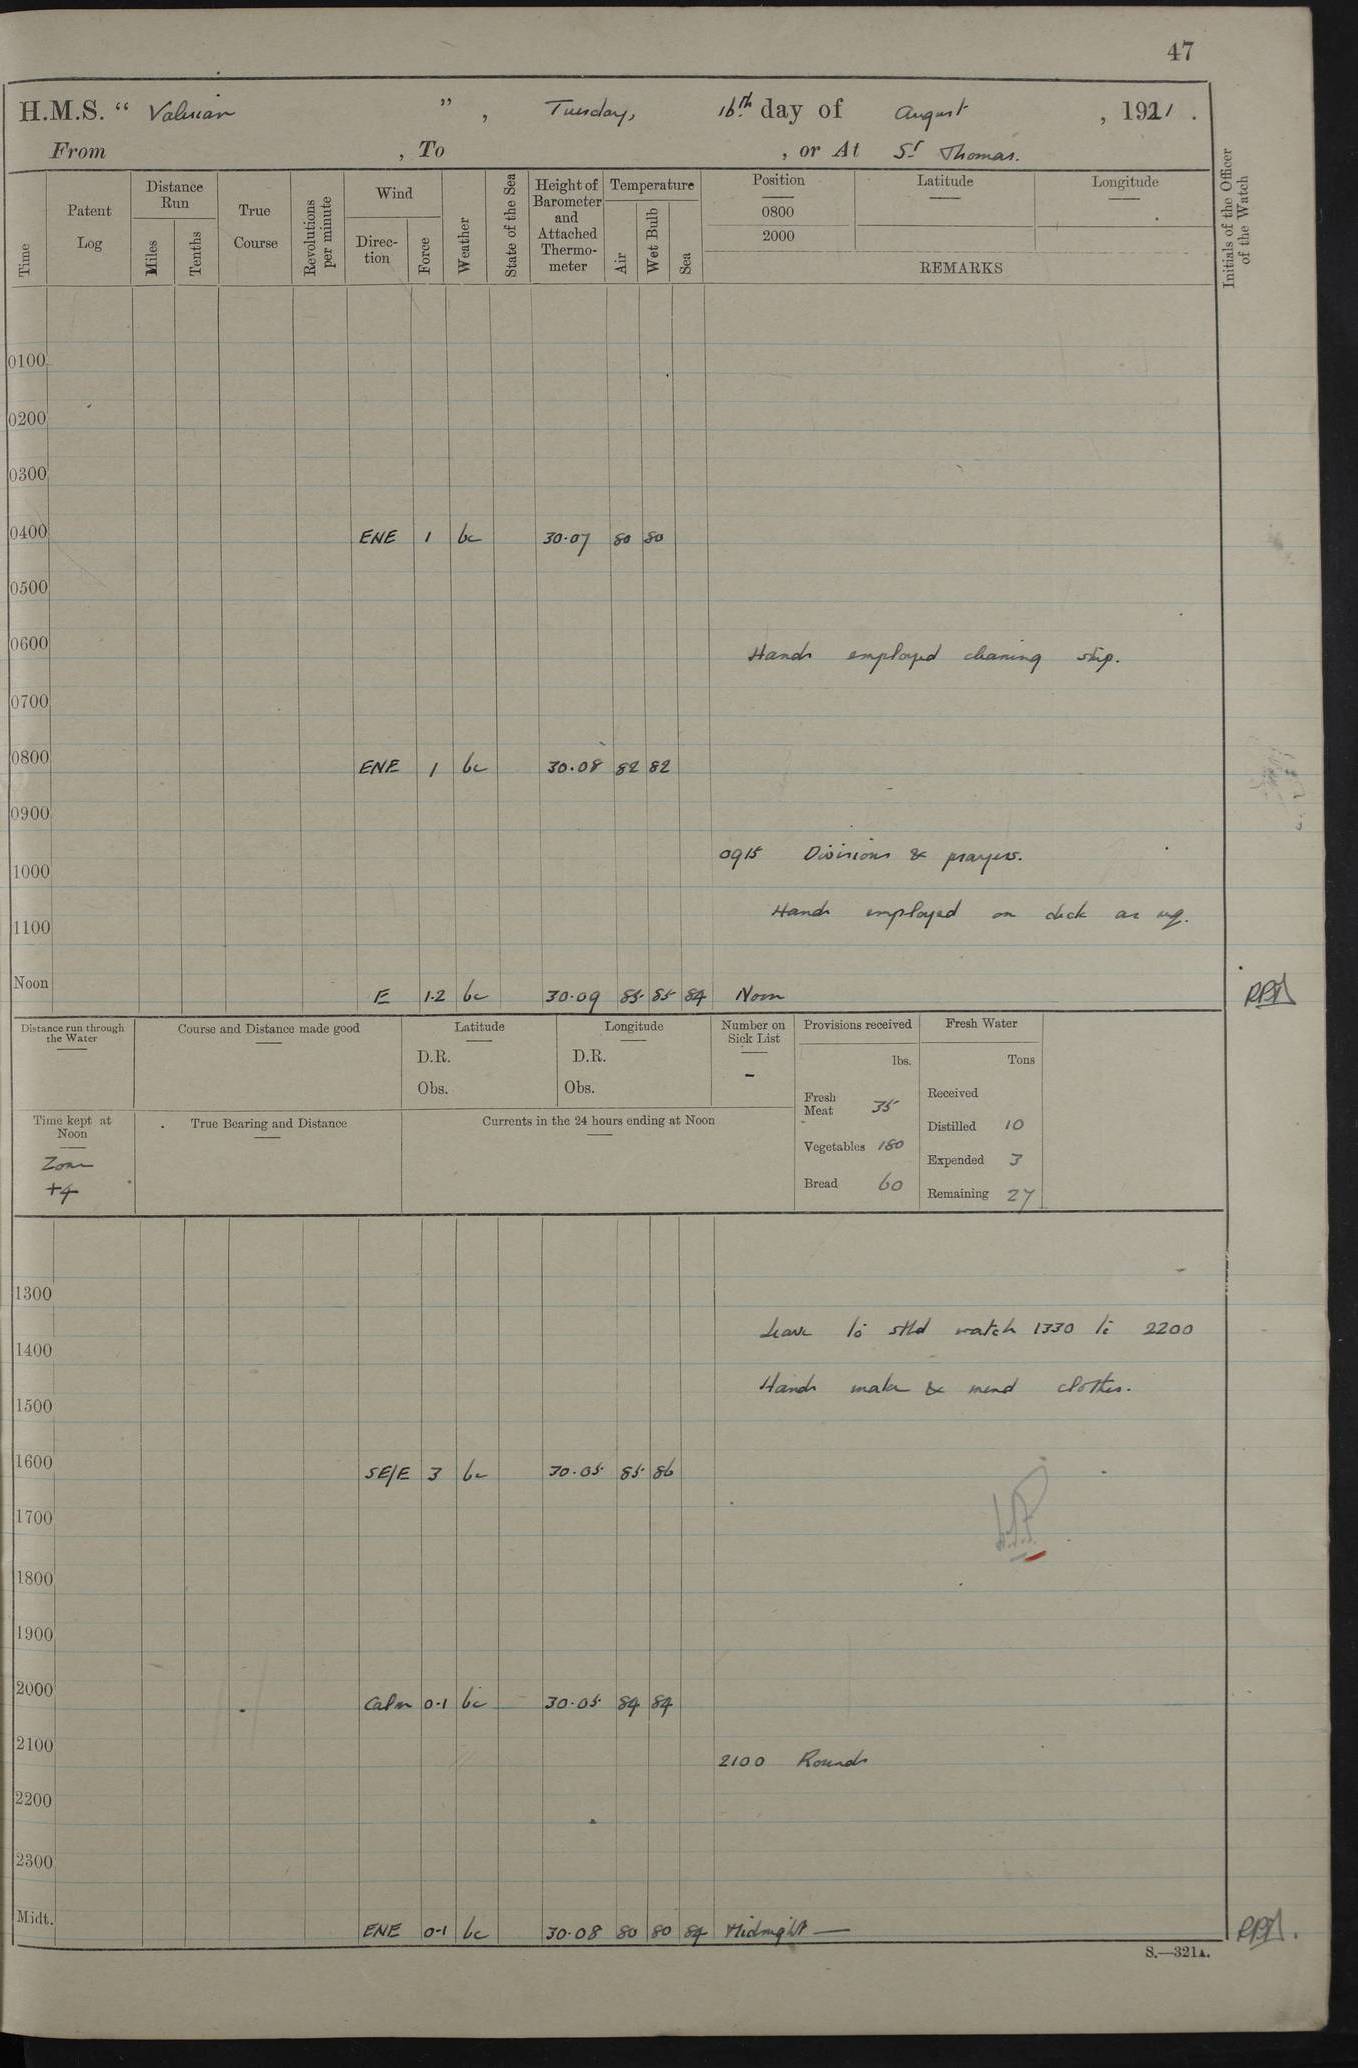 47
H.M.S. " Valerian ", Tuesday, 16th day of August, 1921.
From , To , or At St Thomas.
Time
Patent Log
Distance Run
Miles
Tenths
True Course
Revolutions per minute
Wind
Direc-tion
Force
Weather
State of the Sea
Height of Barometer and Attached Thermo-meter
Temperature
Air
Wet Bulb
Sea
Position
0800
2000
Latitude
Longitude
REMARKS
Initials of the Officer of the Watch
0100
0200
0300
0400 ENE 1 bc 30.07 80 80
0500
0600 Hands employed cleaning ship.
0700
0800 ENE 1 bc 30.08 82 82
0900
0915 Divisions & prayers.
1000
Hands employed on deck as req.
1100
Noon E 1.2 bc 30.09 85 85 84 Noon
Distance run through the Water
Course and Distance made good
Latitude
D.R.
Obs.
Longitude
D.R.
Obs.
Number on Sick List
-
Provisions received
lbs.
Fresh Meat 35
Vegetables 180
Bread 60
Fresh Water
Tons
Received
Distilled 10
Expended 3
Remaining 27
Time kept at Noon
Zone
+4
True Bearing and Distance
Currents in the 24 hours ending at Noon
1300
Leave to stbd watch 1330 to 2200
1400
Hands make & mend clothes.
1500
1600 SE/E 3 bc 30.05 85 86
1700
1800
1900
2000 Calm 0-1 bc 30.05 84 84
2100
2100 Rounds
2200
2300
Midt. ENE 0-1 bc 30.08 80 80 84 Midnight —
S.—321A.